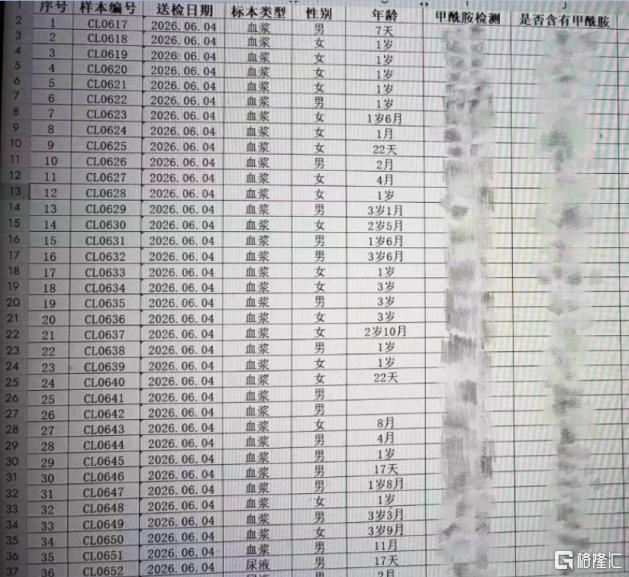 1 序号 样本编号 送检日期 标本类型 性别 年龄 甲酰胺检测 是否含有甲酰胺
2 1 CL0617 2026.06.04 血浆 男 7天
3 2 CL0618 2026.06.04 血浆 女 1岁
4 3 CL0619 2026.06.04 血浆 女 1岁
5 4 CL0620 2026.06.04 血浆 女 1岁
6 5 CL0621 2026.06.04 血浆 女 1岁
7 6 CL0622 2026.06.04 血浆 男 1岁
8 7 CL0623 2026.06.04 血浆 女 1岁6月
9 8 CL0624 2026.06.04 血浆 女 1月
10 9 CL0625 2026.06.04 血浆 女 22天
11 10 CL0626 2026.06.04 血浆 男 2月
12 11 CL0627 2026.06.04 血浆 女 4月
13 12 CL0628 2026.06.04 血浆 女 1岁
14 13 CL0629 2026.06.04 血浆 男 3岁1月
15 14 CL0630 2026.06.04 血浆 女 2岁5月
16 15 CL0631 2026.06.04 血浆 男 1岁6月
17 16 CL0632 2026.06.04 血浆 男 3岁6月
18 17 CL0633 2026.06.04 血浆 女 1岁
19 18 CL0634 2026.06.04 血浆 女 3岁
20 19 CL0635 2026.06.04 血浆 男 3岁
21 20 CL0636 2026.06.04 血浆 女 3岁
22 21 CL0637 2026.06.04 血浆 女 2岁10月
23 22 CL0638 2026.06.04 血浆 男 1岁
24 23 CL0639 2026.06.04 血浆 女 1岁
25 24 CL0640 2026.06.04 血浆 女 22天
26 25 CL0641 2026.06.04 血浆 男
27 26 CL0642 2026.06.04 血浆 男
28 27 CL0643 2026.06.04 血浆 女 8月
29 28 CL0644 2026.06.04 血浆 男 4月
30 29 CL0645 2026.06.04 血浆 男 1岁
31 30 CL0646 2026.06.04 血浆 男 17天
32 31 CL0647 2026.06.04 血浆 男 1岁8月
33 32 CL0648 2026.06.04 血浆 女 1岁
34 33 CL0649 2026.06.04 血浆 男 3岁3月
35 34 CL0650 2026.06.04 血浆 女 3岁9月
36 35 CL0651 2026.06.04 血浆 男 11月
37 36 CL0652 2026.06.04 尿液 男 17天
格隆汇